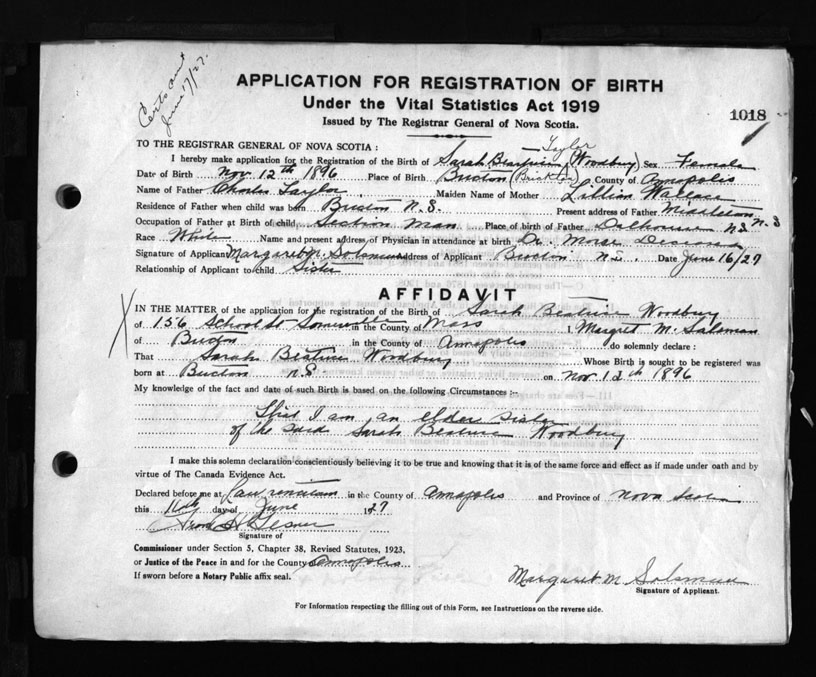 Certs sent
June 17/27.
APPLICATION FOR REGISTRATION OF BIRTH
Under the Vital Statistics Act 1919
1018
Issued by The Registrar General of Nova Scotia.
Taylor
TO THE REGISTRAR GENERAL OF NOVA SCOTIA :
I hereby make application for the Registration of the Birth of Sarah (Woodbury) Sex Female
Date of Birth Nov. 12th 1896 Place of Birth County of Annapolis
Name of Father Charles Taylor Maiden Name of Mother Lillian Wallace
Residence of Father when child was born N.S. Present address of Father Middleton N.S
Occupation of Father at Birth of child Section Man Place of birth of Father Dalhousie N.S
Race White Name and present address of Physician in attendance at birth Dr. Morse
Signature of Applicant Margaret M. Address of Applicant N.S. Date June 16/27
Relationship of Applicant to child Sister
AFFIDAVIT
IN THE MATTER of the application for the registration of the Birth of Sarah Beatrice Woodbury
of 156 School St Somerville in the County of Mass I, Margret M.
of in the County of Annapolis do solemnly declare :
That Sarah Beatrice Woodbury Whose Birth is sought to be registered was
born at N.S on Nov. 12th 1896
My knowledge of the fact and date of such Birth is based on the following Circumstances :-
That I am an elder sister
of the said Sarah Beatrice Woodbury
I make this solemn declaration conscientiously believing it to be true and knowing that it is of the same force and effect as if made under oath and by
virtue of The Canada Evidence Act.
Declared before me at Lawrencetown in the County of Annapolis and Province of Nova Scotia
this 16th day of June 1927
Signature of
Commissioner under Section 5, Chapter 38, Revised Statutes, 1923.
or Justice of the Peace in and for the County Annapolis
If sworn before a Notary Public affix seal.
Margaret M.
Signature of Applicant.
For Information respecting the filling out of this Form, see Instructions on the reverse side.